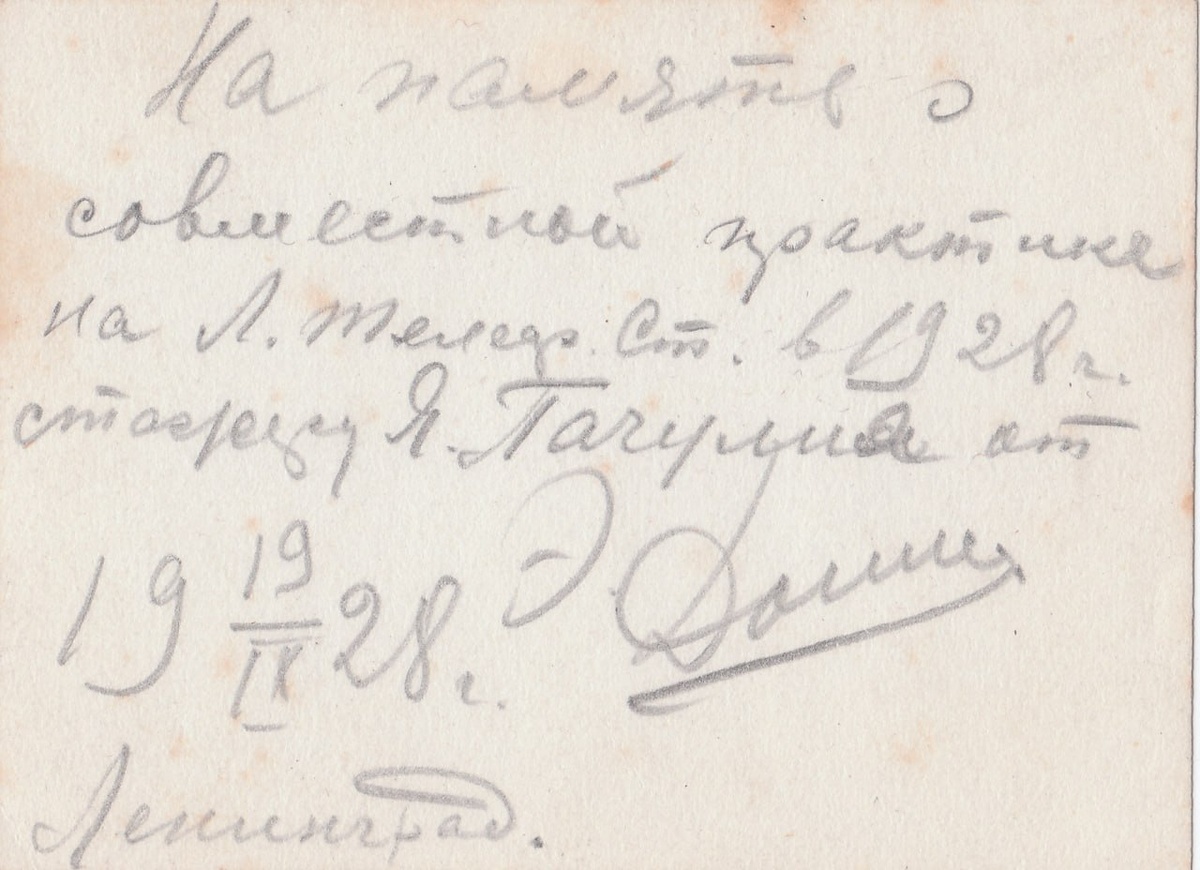 На память о
совместной практике
на Л. Телегр. Ст. в 1928 г.
стажеру Я. Пачулиа от
Э.
19 19/IX 28 г.
Ленинград.